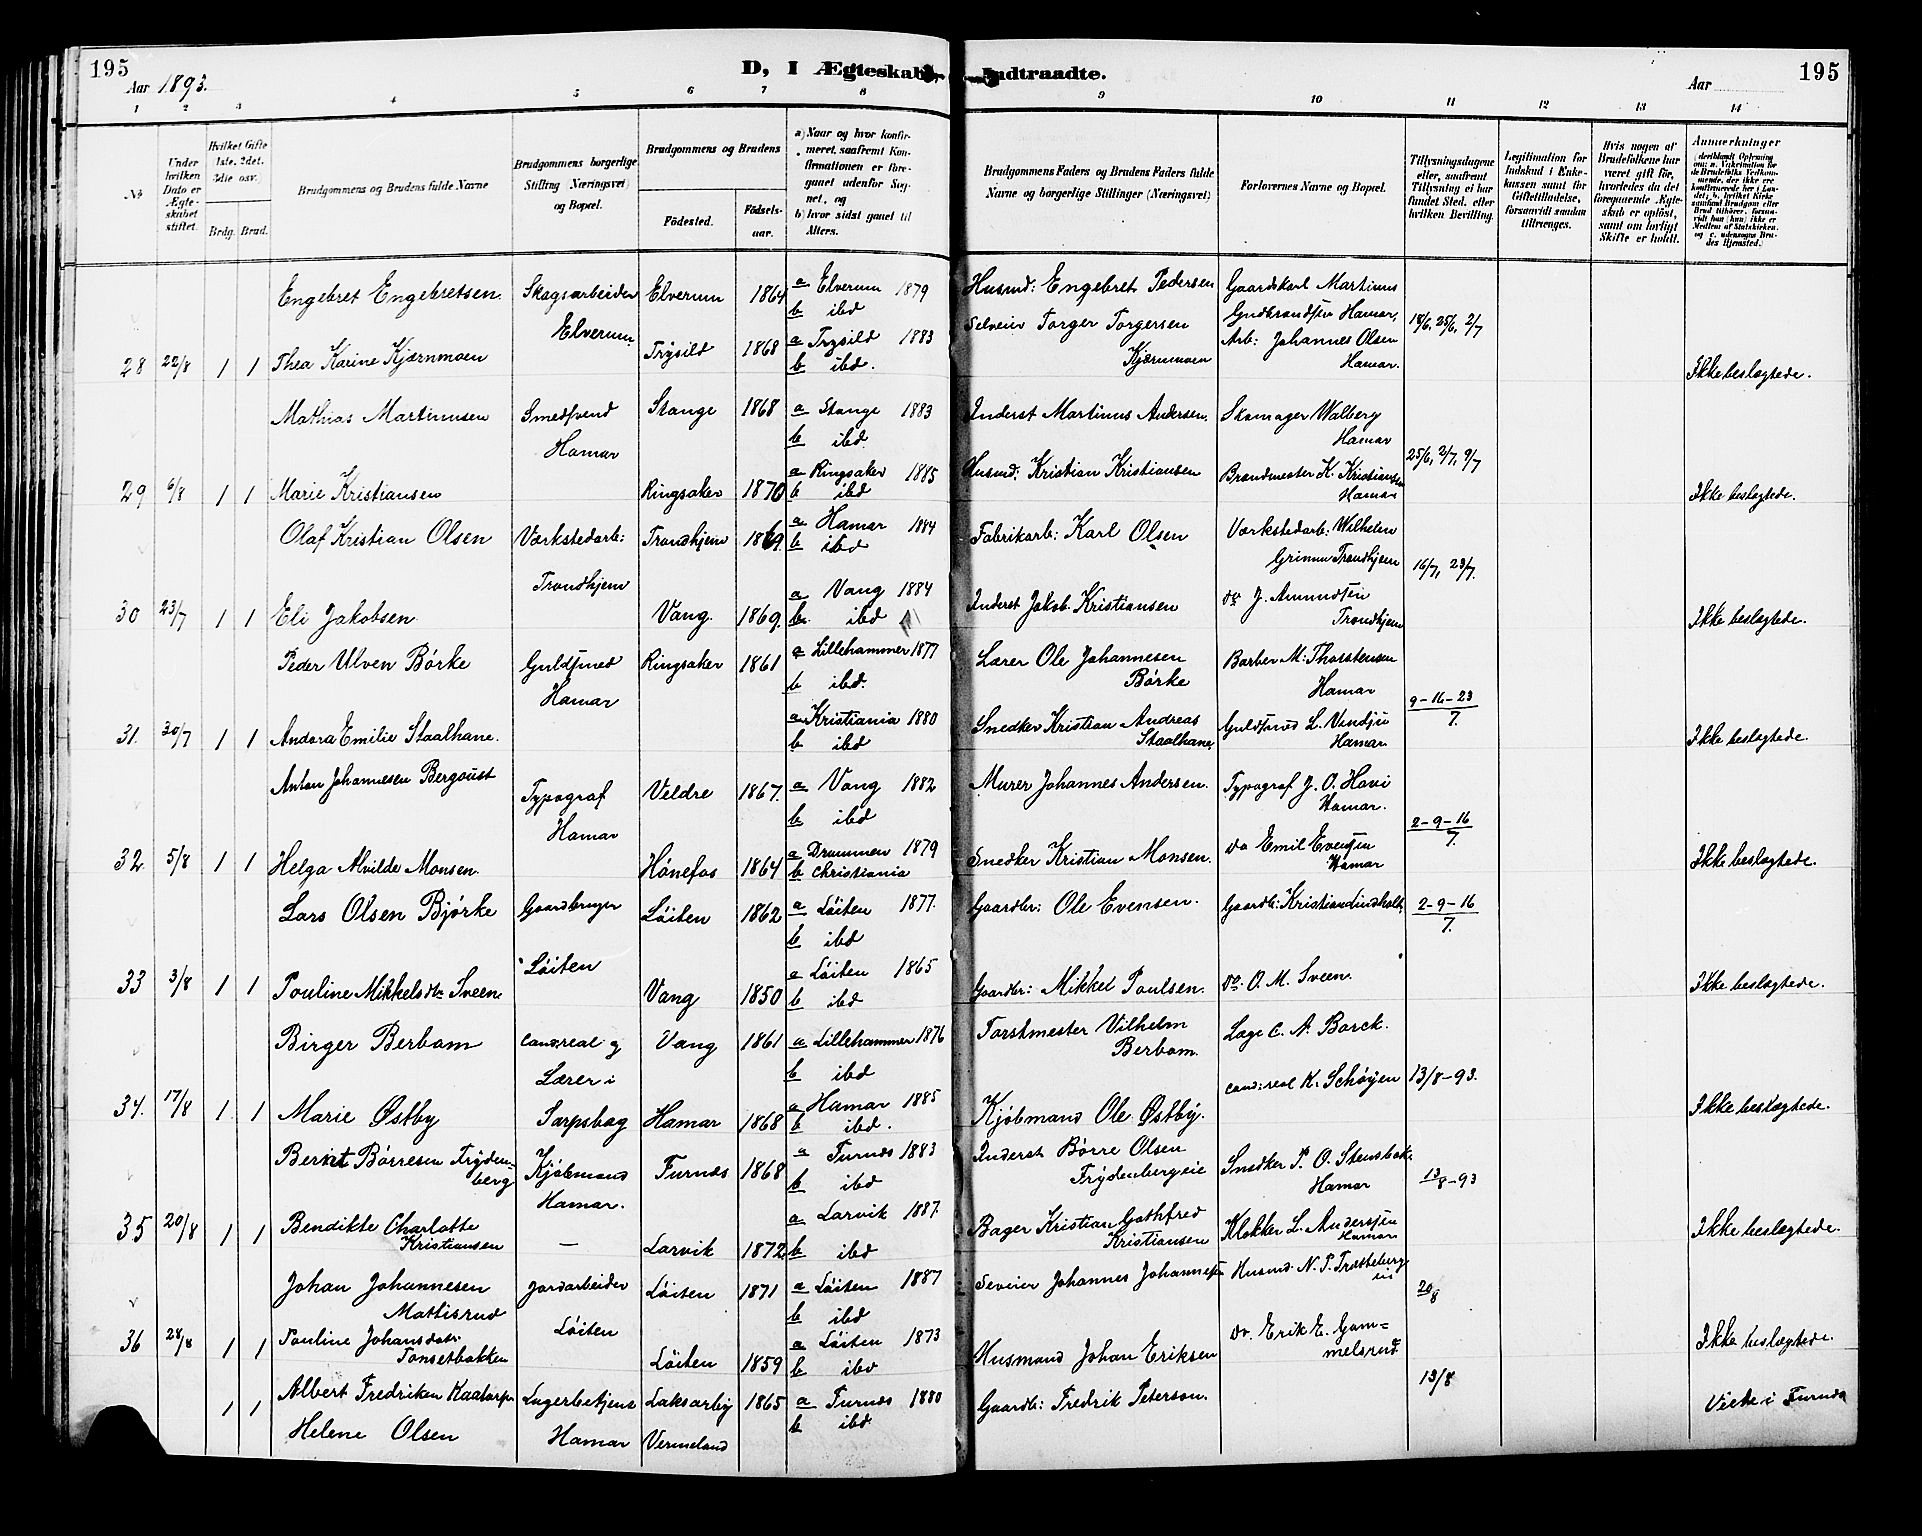 195
Aar 1893.
D, I Ægteskab Indtraadte.
Aar
195
1 2 3 4 5 6 7 8 9 10 11 12 13 14
№
Under hvilken Dato er Ægteskabet stiftet.
Hvilket Gifte (1ste. 2det. 3die osv.)
Brdg. Brud.
Brudgommens og Brudens fulde Navne
Brudgommens borgerlige Stilling (Næringsvei) og Bopæl.
Brudgommens og Brudens
Fødested.
Fødselsaar.
a) Naar og hvor konfirmeret, saafremt Konfirmationen er foregaaet udenfor Sognet, og
b) hvor sidst gaaet til Alters.
Brudgommens Faders og Brudens Faders fulde Navne og borgerlige Stillinger (Næringsvei)
Forlovernes Navne og Bopæl.
Tillysningsdagene eller, saafremt Tillysning ei har fundet Sted, efter hvilken Bevilling.
Legitimation for Indskud i Enkekassen samt for Giftetilladelse, forsaavidt saadan tiltrænges.
Hvis nogen af Brudefolkene har været gift før, hvorledes da det foregaaende Ægteskab er opløst, samt om lovligt Skifte er holdt.
Anmerkninger
Engebret Engebretsen. Skogsarbeider Elverum 1864 a Elverum 1879 Husmd: Engebret Pedersen Gaardskarl Martinus
Elverum. b ibd Gudbrandsen Hamar, 18/6, 25/6, 2/7
28 22/8 1 1 Thea Karine Kjærnmoen Trysild 1868 a Trysild 1883 Selveier Torger Torgersen Arb: Johannes Olsen
b ibd. Kjærnmoen Hamar. Ikke beslægtede.
Mathias Martinusen Smedsvend Stange 1868 a Stange 1883 Inderst Martinus Andersen. Skomager Walberg
Hamar b ibd. Hamar 25/6, 2/7, 9/7
29 6/8 1 1 Marie Kristiansen Ringsaker 1870 a Ringsaker 1885 Husmd: Kristian Kristiansen Brandmester K. Kristiansen
b ibd Hamar Ikke beslægtede.
Olaf Kristian Olsen Værkstedarb: Trondhjem 1869. a Hamar 1884 Fabrikarb: Karl Olsen Værkstedarb: Wilhelm
Trondhjem b ibd Grimm Trondhjem 16/7, 23/7.
30 23/7 1 1 Eli Jakobsen Vang. 1869. a Vang 1884 Inderst Jakob Kristiansen do J. Amundsen
b. ibd Trondhjem Ikke beslægtede.
Peder Ulven Børke Guldsmed Ringsaker 1861 a Lillehammer 1877 Lærer Ole Johannesen Barber M: Thorstensen
Hamar b ibd. Børke Hamar 9-16-23/7.
31. 30/7 1 1 Andora Emilie Staalhane. a Kristiania 1880 Snedker Kristian Andreas Guldsmed L.
b ibd Staalhane Hamar. Ikke beslægtede.
Anton Johannesen Bergqust Typograf Veldre 1867. a Vang 1882 Murer Johannes Andersen. Typograf J. O. Hovi
Hamar b ibd Hamar. 2-9-16/7.
32. 5/8 1 1 Helga Alvilde Monsen. Hønefos 1864 a Drammen 1879 Snedker Kristian Monsen. do Emil Evensen
b Christiania Hamar Ikke beslægtede.
Lars Olsen Bjørke Gaardbruger Løiten 1862 a Løiten 1877. Gaardbr: Ole Evensen. Gaardb: Kristian Lindholt, 2-9-16/7.
Løiten b ibd
33 3/8 1 1 Pouline Mikkelsdtr Sveen. Vang 1850 a Løiten 1865 Gaardbr: Mikkel Poulsen. do. O. M. Sveen.
b ibd Ikke beslægtede.
Birger Berbom cand.real og Vang 1861 a Lillehammer 1876 Forstmester Vilhelm Læge C. A. Borck.
Lærer i b ibd Berbom. cand: real K. Schøyen 13/8-93.
34. 17/8 1 1 Marie Østby Sarpsborg Hamar 1868 a Hamar 1885 Kjøbmand Ole Østby.
b ibd. Ikke beslægtede.
Bernt Børresen Frydenberg Kjøbmand Furnæs 1868 a Furnæs 1883 Inderst Børre Olsen Snedker P. O. Stensbak
Hamar. b ibd Frydenbergeie Hamar 13/8-93
35 20/8 1 1 Bendikte Charlotte — Larvik 1872 a Larvik 1887. Bager Kristian Gothfred Klokker L. Anderssen
Kristiansen b ibd Kristiansen Hamar Ikke beslægtede.
Johan Johannesen Jordarbeider Løiten 1871 a Løiten 1887 Seveier Johannes Johannesen Husmd N. P. Træsteberg
Mattisrud Løiten b ibd eie 20/8
36 28/8 1 1 Pouline Johansdatr Løiten 1859 a Løiten 1873 Husmand Johan Eriksen do. Erik E. Gammelsrud
Tonsetbakken b ibd Ikke beslægtede.
1 1 Albert Fredriken Kaatorp Lagerbetjent Laksarby 1865 a Furnæs 1880 Gaardb: Fredrik Peterson. 13/8
Helene Olsen Hamar Vermeland b ibd Viet i Furnæs